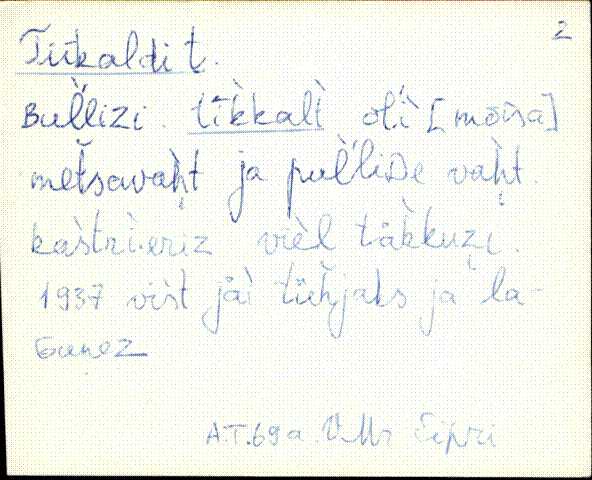 2
Tiikaldi t.
Bul̀lizi. tìkkalì olì [mõisa]
metsavaht ja pul̀liDe vaht
kàstrì.eriz vièl tàkkuzi.
1937 vist jäi tühjaks ja la-
Gunez
A.T. 69 a. VMr Eipri